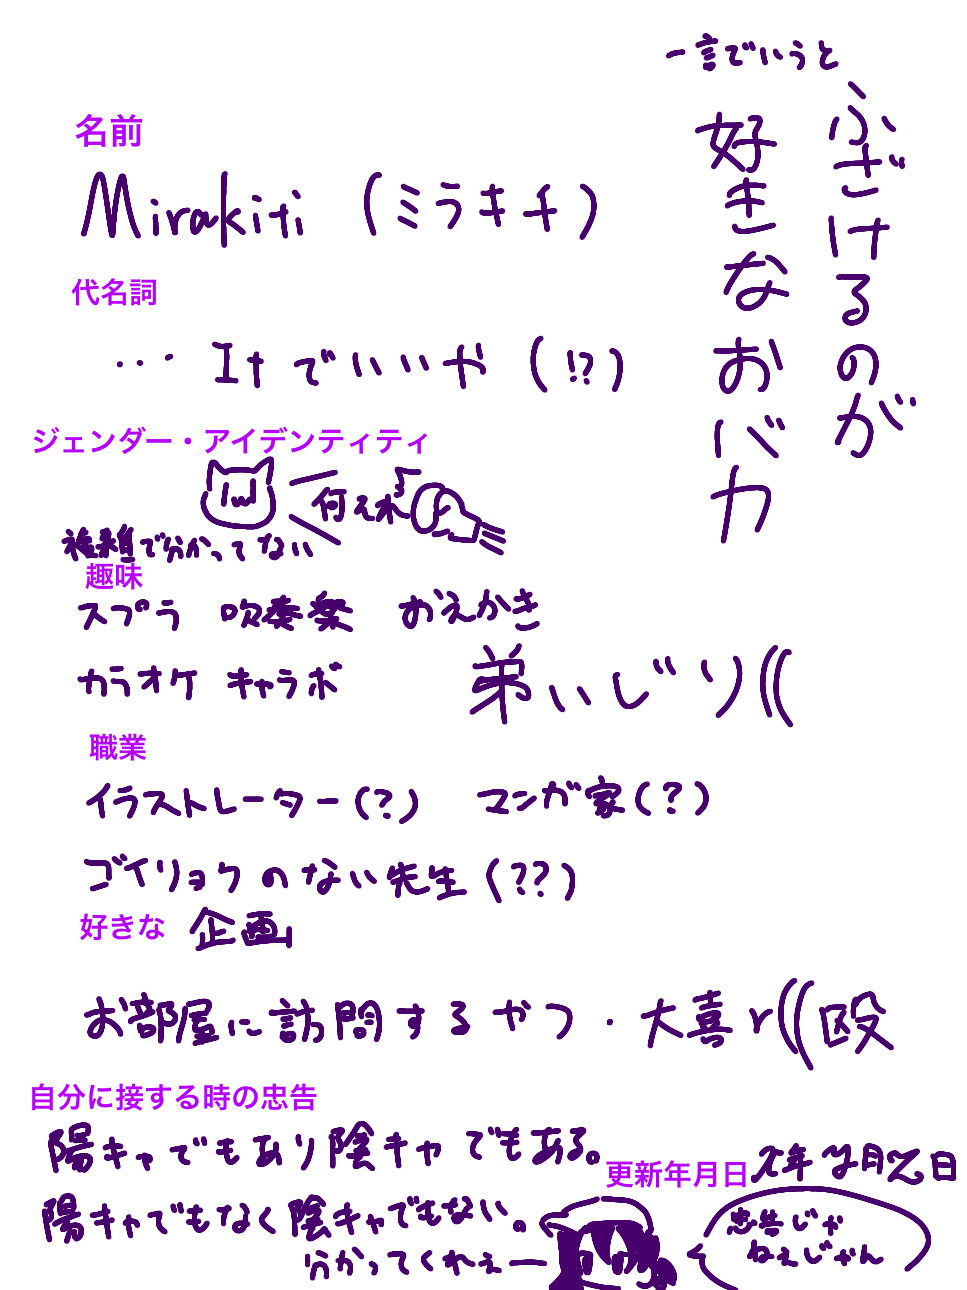 一言でいうと
ふざけるのが
好きなおバカ
名前
Mirakiti (ミラキチ)
代名詞
… Itでいいや (!?)
ジェンダー・アイデンティティ
何それ
複雑で分かってない
趣味
スプラ 吹奏楽 おえかき
カラオケ キャラボ 弟いじり((
職業
イラストレーター(?) マンガ家(?)
ゴイリョクのない先生(??)
好きな 企画
お部屋に訪問するやつ・大喜r((殴
自分に接する時の忠告
陽キャでもあり陰キャでもある。
更新年月日
陽キャでもなく陰キャでもない。
分かってくれぇー
忠告じゃ
ねぇじゃん